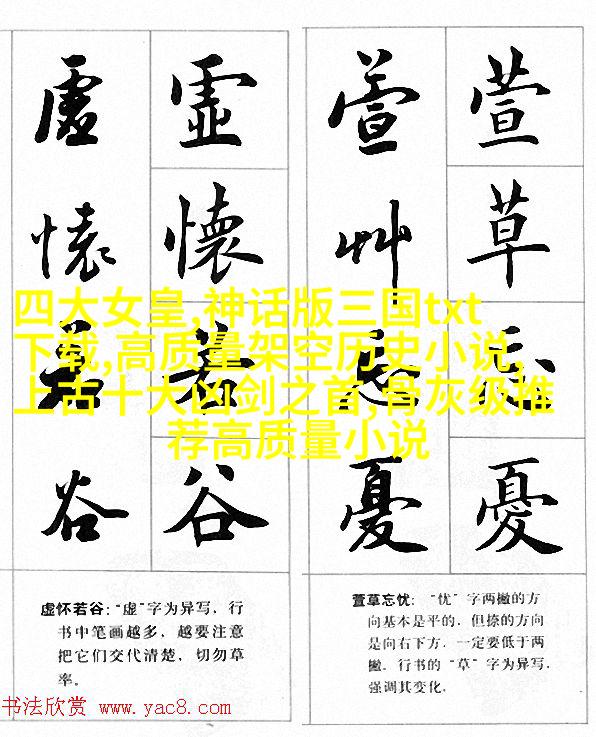 虛懷若谷
虛懷若谷
萱艸忘憂
萱草忘憂
四大女皇,神话版三国txt
下载,高质量架空历史小说,
上古十大凶剑之首,骨灰级推
荐高质量小说
虚怀若谷:“虚”字为异写，行
书中笔画越多，越要注意
把它们交代清楚，切勿草
率。
萱草忘忧：“忧”字两撇的方
向基本是平的，但捺的方向
是向右下方，一定要低于两
撇。行书的“草”字为异写，
强调其变化。
书法欣赏 www.yac8.com